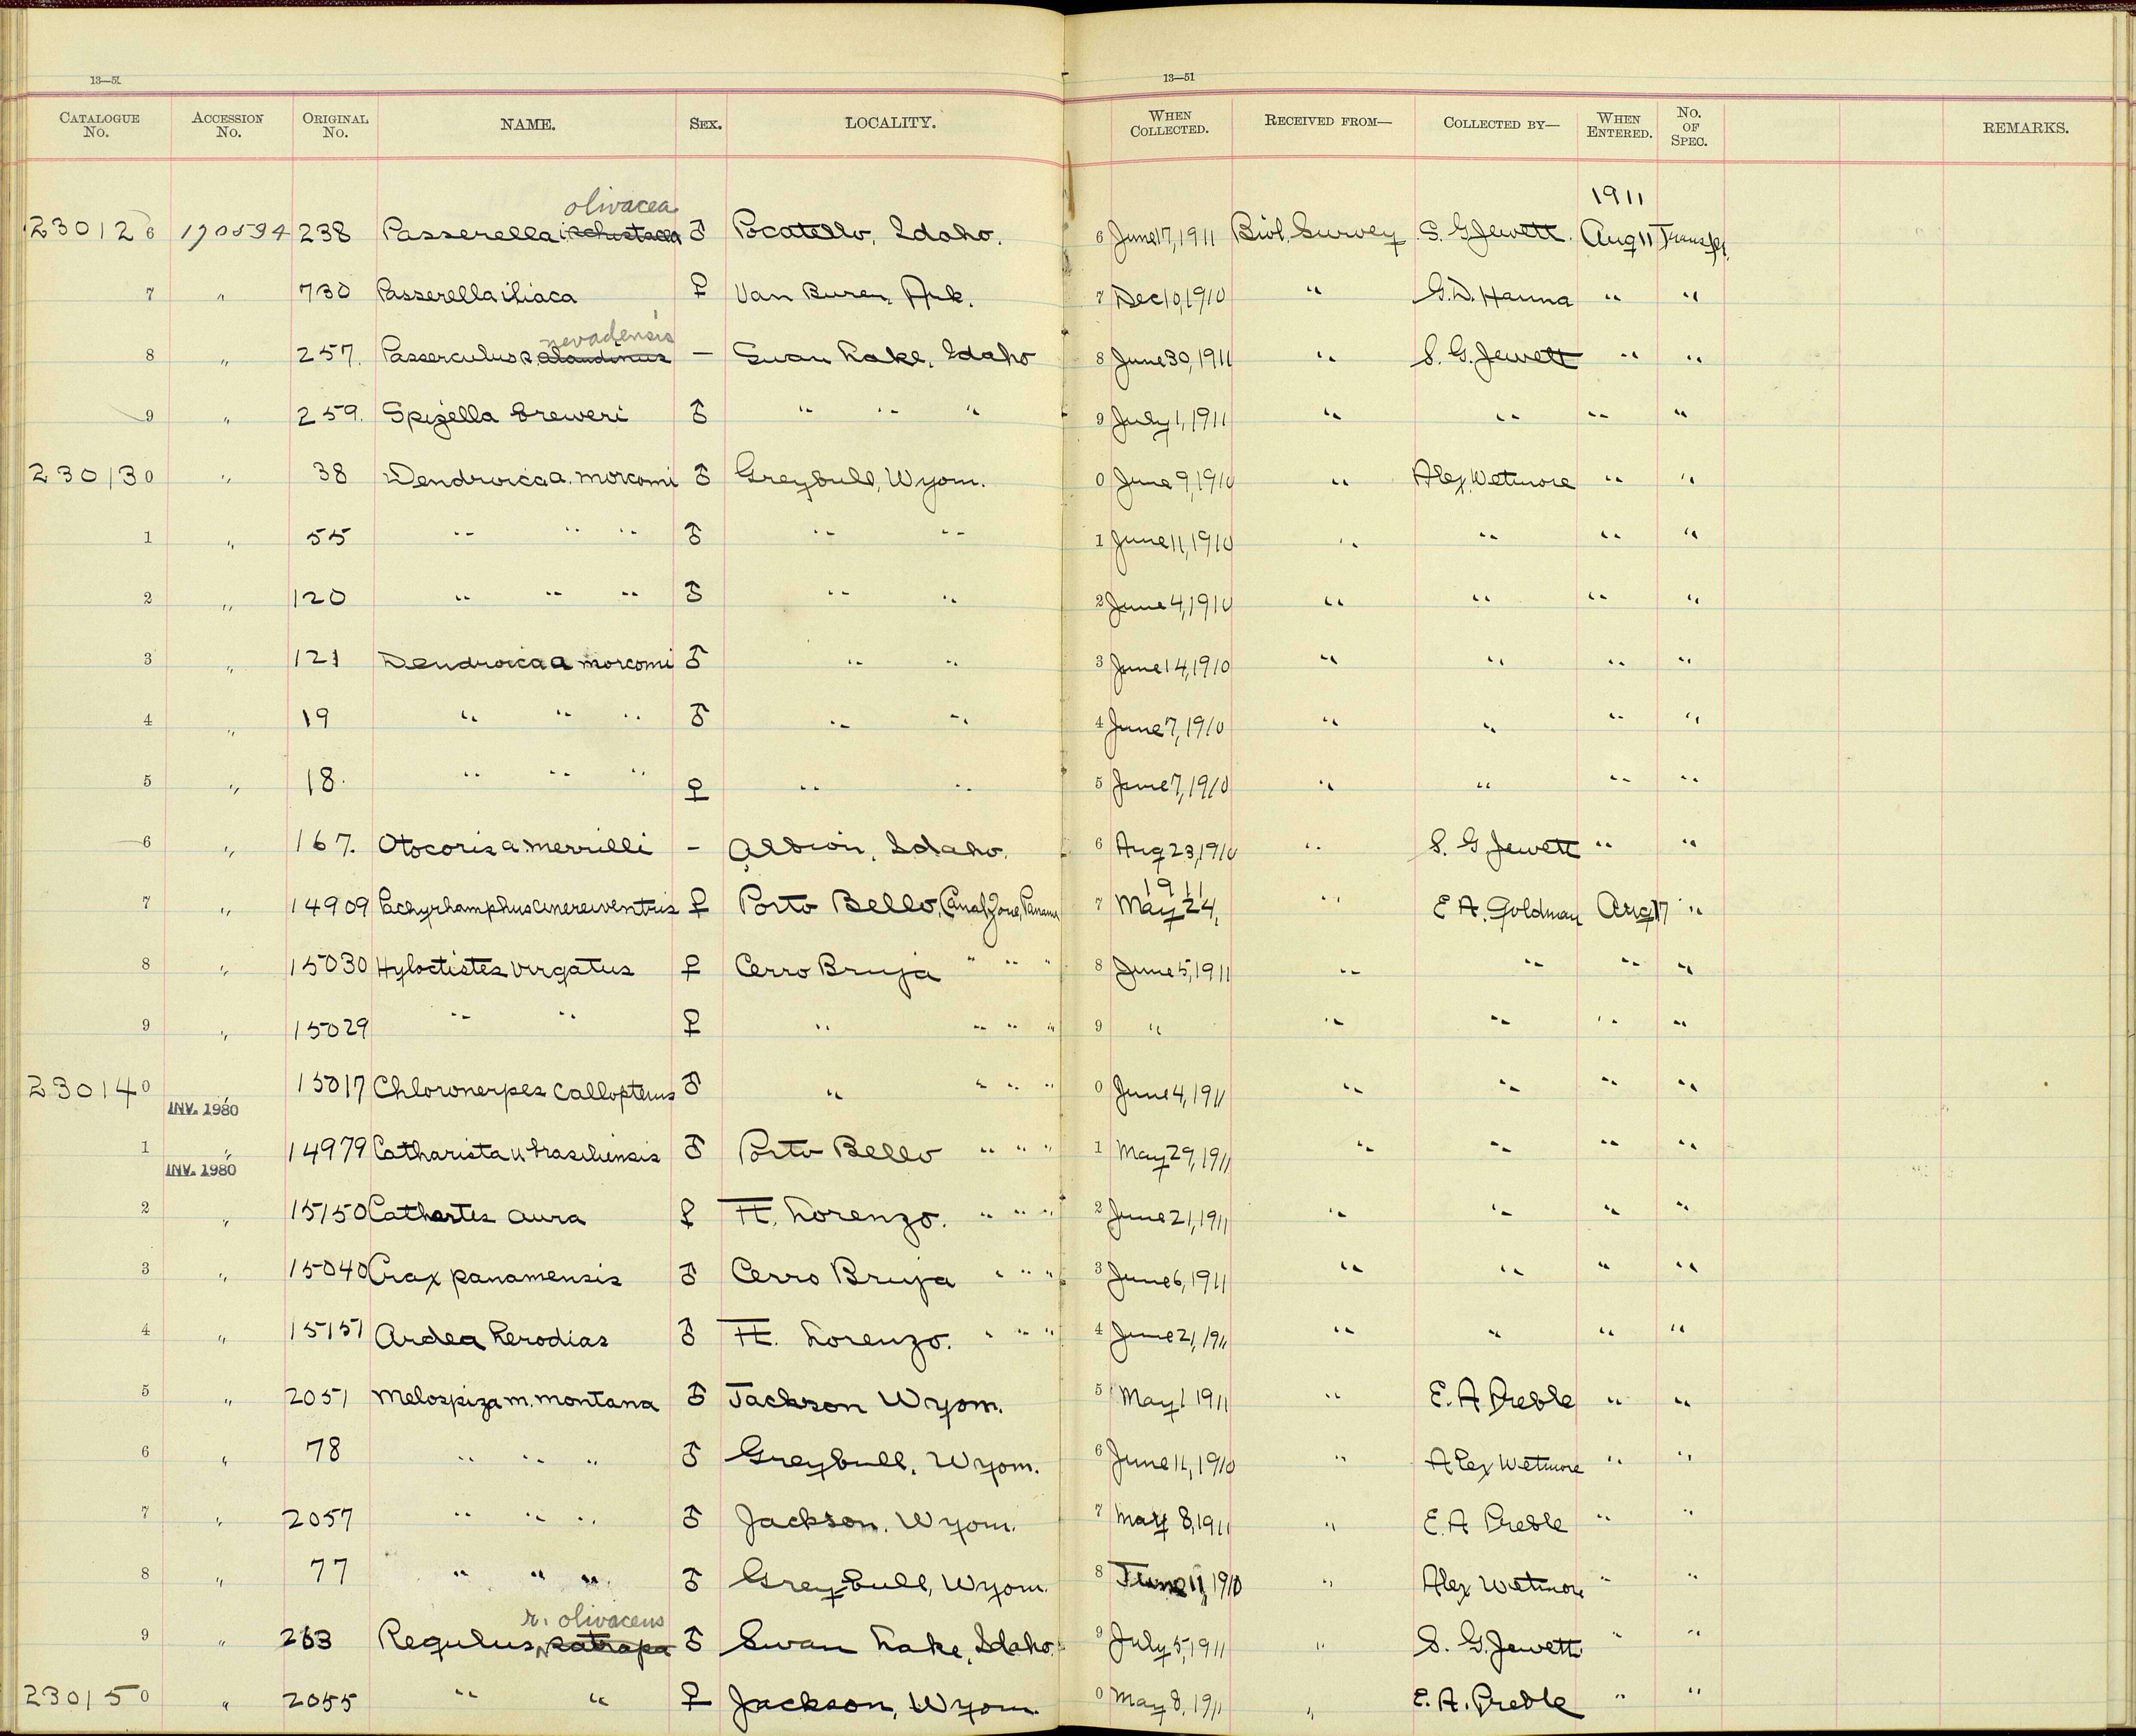 13—51 13—51
CATALOGUE No. ACCESSION No. ORIGINAL No. NAME. SEX. LOCALITY. WHEN COLLECTED. RECEIVED FROM— COLLECTED BY— WHEN ENTERED. No. OF SPEC. REMARKS.
olivacea 1911
230126 170594 238 Passerella i. schistacea ♂ Pocatello, Idaho. 6 June 17, 1911 Biol. Survey S. G Jewett. Aug 11 Transfer
7 " 730 Passerella iliaca ♀ Van Buren, Ark. 7 Dec 10, 1910 " G. D. Hanna " "
nevadensis
8 " 257. Passerculus s. alaudinus – Swan Lake, Idaho 8 June 30, 1911 " S. G. Jewett " "
9 " 259. Spizella breweri ♂ " " " 9 July 1, 1911 " " " "
230130 " 38 Dendroica a. morcomi ♂ Greybull, Wyom. 0 June 9, 1910 " Alex. Wetmore " "
1 " 55 " " " ♂ " " 1 June 11, 1910 " " " "
2 " 120 " " " ♂ " " 2 June 4, 1910 " " " "
3 " 121 Dendroica a morcomi ♂ " " 3 June 14, 1910 " " " "
4 " 19 " " " ♂ " " 4 June 7, 1910 " " " "
5 " 18. " " " ♀ " " 5 June 7, 1910 " " " "
6 " 167. Otocoris a. merrilli – Albion, Idaho. 6 Aug 23, 1910 " S. G Jewett " "
1911
7 " 14909 Pachyrhamphus cinereiventris ♀ Porto Bello, Canal Zone, Panama 7 May 24, " E A. Goldman Aug 17 "
8 " 15030 Hyloctistes virgatus ♀ Cerro Bruja " " " 8 June 5, 1911 " " " "
9 " 15029 " " ♀ " " " " 9 " " " " "
230140 " 15017 Chloronerpes callopterus ♂ " " " " 0 June 4, 1911 " " " "
INV. 1980
1 " 14979 Catharista u brasiliensis ♂ Porto Bello " " " 1 May 29, 1911 " " " "
INV. 1980
2 " 15150 Cathartes aura ♀ Ft. Lorenzo. " " " 2 June 21, 1911 " " " "
3 " 15040 Crax panamensis ♂ Cerro Bruja " " " 3 June 6, 1911 " " " "
4 " 15151 Ardea herodias ♂ Ft. Lorenzo. " " " 4 June 21, 1911 " " " "
5 " 2051 Melospiza m. montana ♂ Jackson Wyom. 5 May 1 1911 " E. A Preble " "
6 " 78 " " " ♂ Greybull, Wyom. 6 June 11, 1910 " Alex Wetmore " "
7 " 2057 " " " ♂ Jackson, Wyom. 7 May 8, 1911 " E. A Preble " "
8 " 77 " " " ♂ Greybull, Wyom. 8 June 11, 1910 " Alex Wetmore " "
r. olivaceus
9 " 263 Regulus satrapa ♂ Swan Lake, Idaho. 9 July 5, 1911 " S. G. Jewett " "
230150 " 2055 " " ♀ Jackson, Wyom. 0 May 8, 1911 " E. A. Preble " "